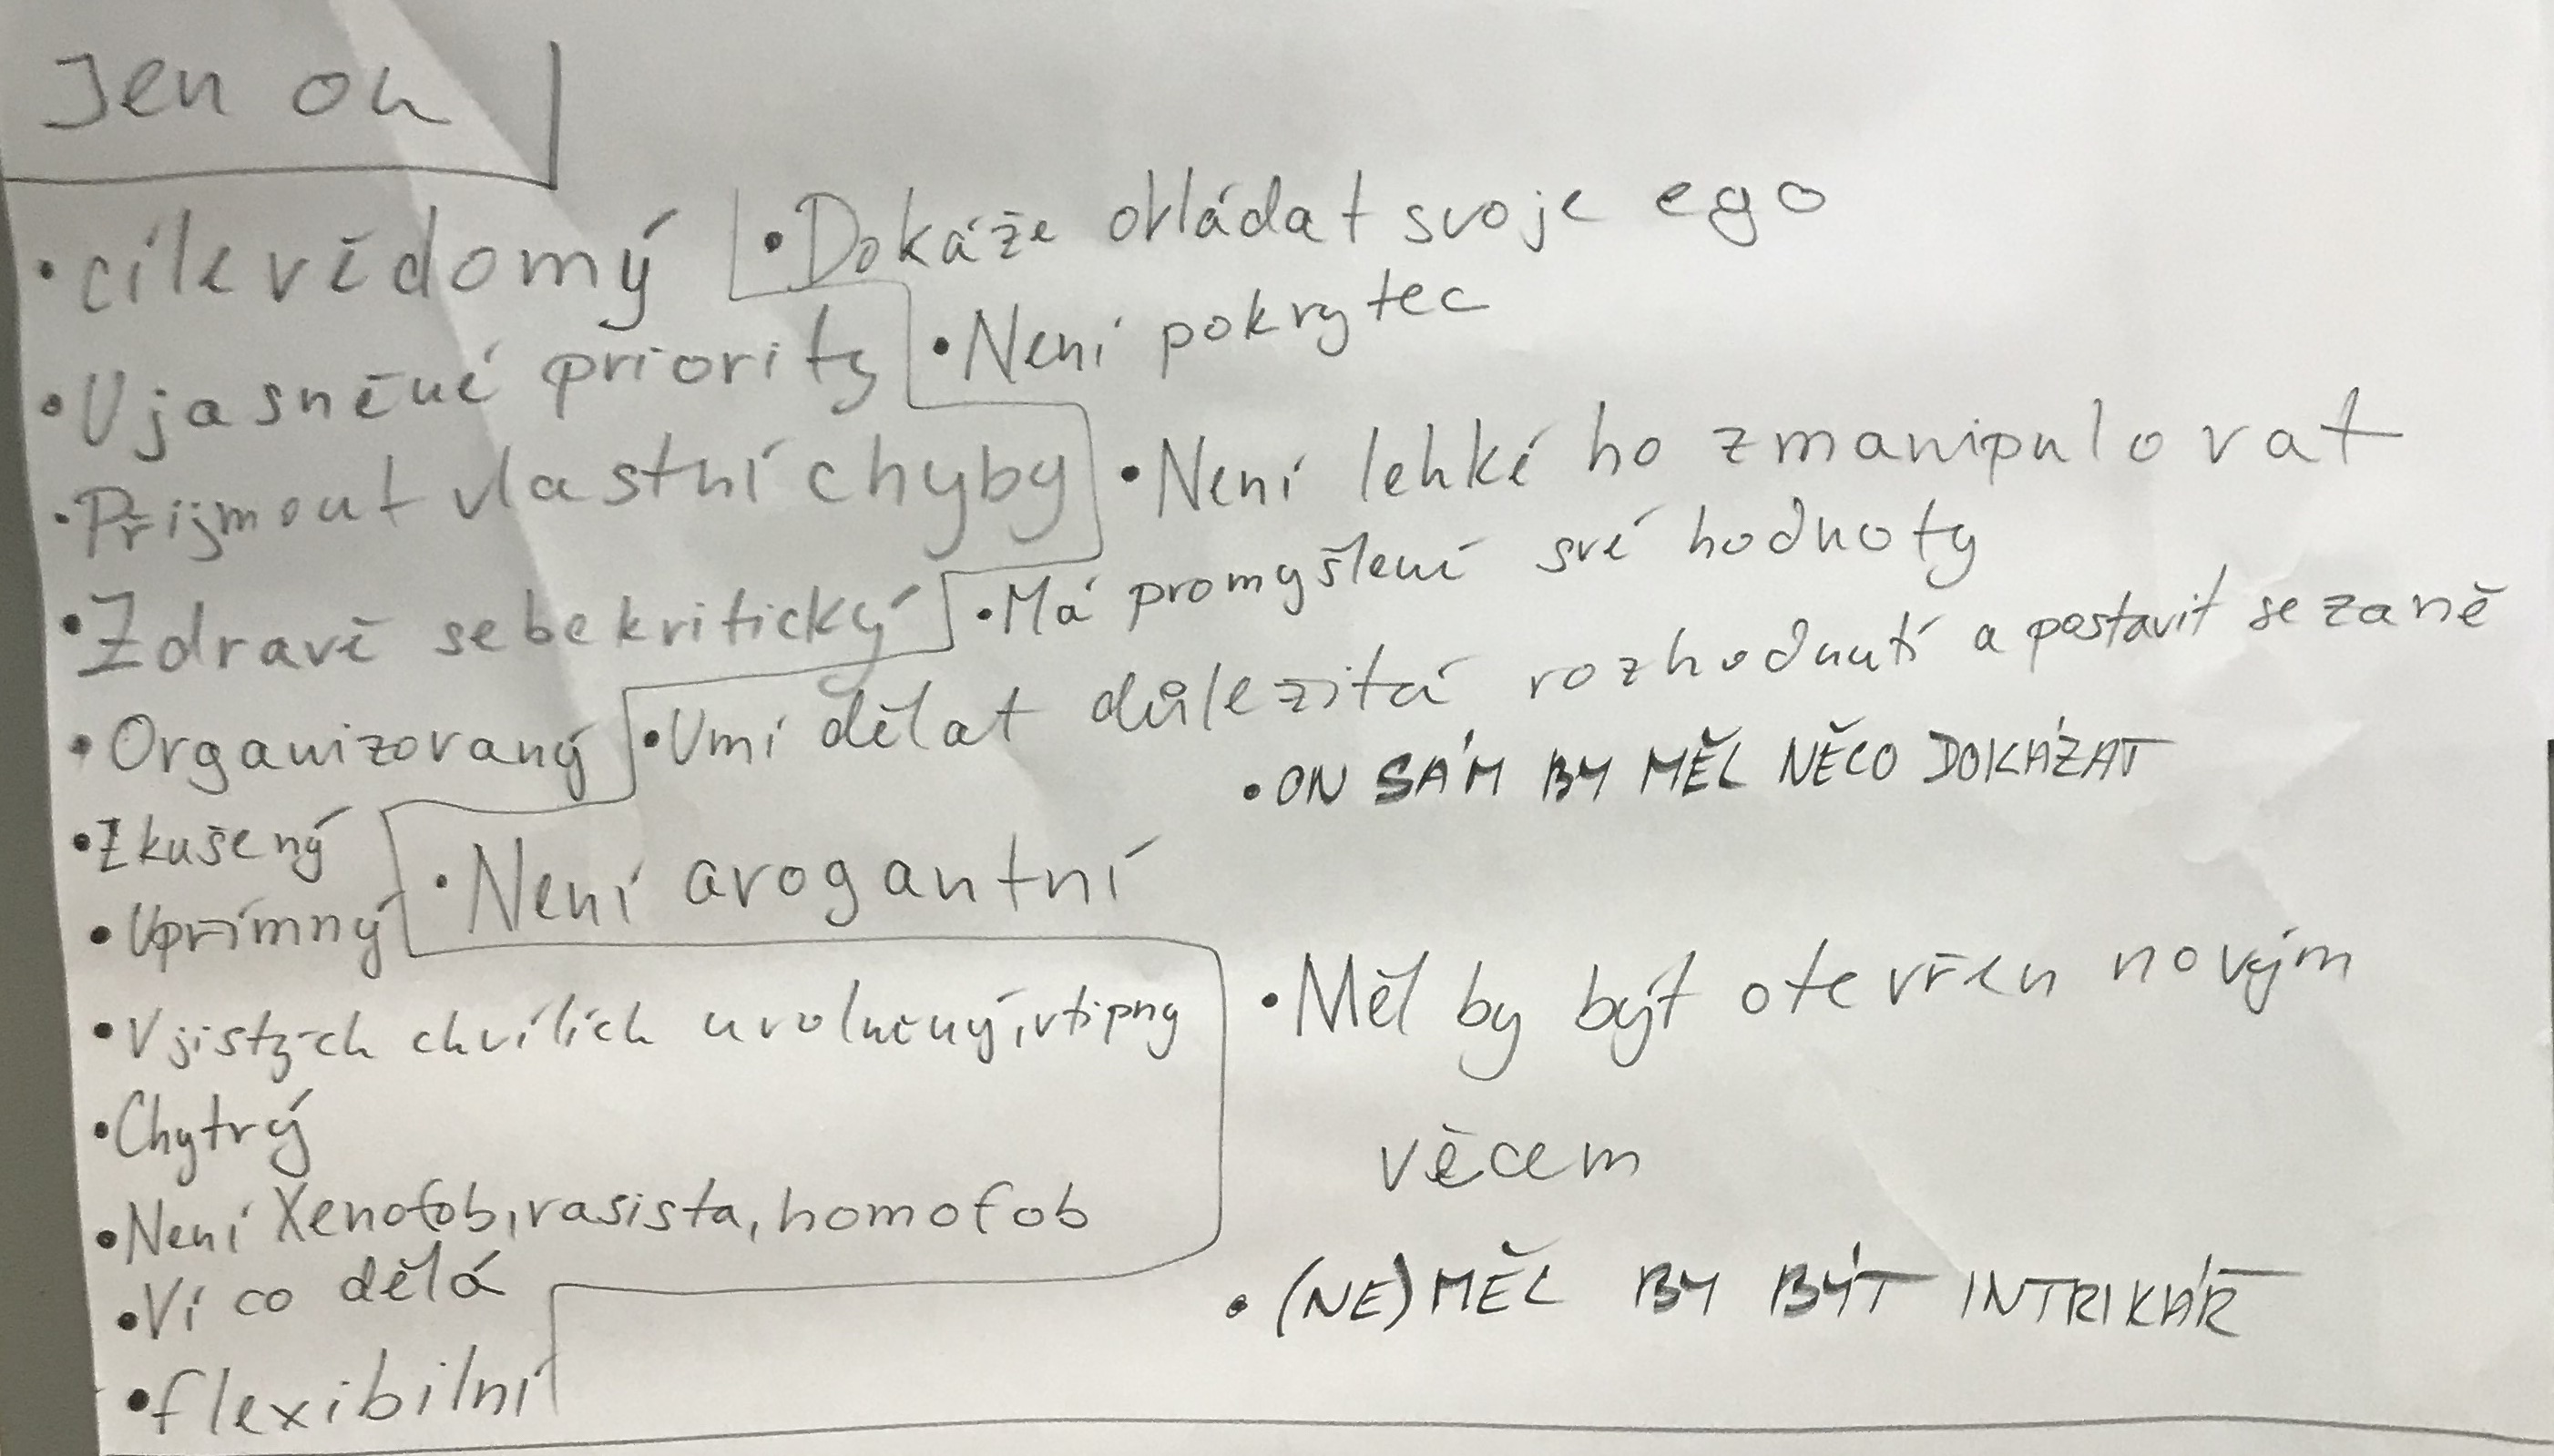 Jen on
• cílevědomý
• Ujasněné priority
• Přijmout vlastní chyby
• Zdravě sebekritický
• Organizovaný
• Zkušený
• Upřímný
• V jistých chvílích uvolněný, vtipny
• Chytrý
• Není Xenofob, rasista, homofob
• Ví co dělá
• flexibilní
• Dokáže ovládat svoje ego
• Není pokrytec
• Není lehké ho zmanipulovat
• Má promyšlené své hodnoty
• Umí dělat důležitá rozhodnutí a postavit se za ně
• ON SÁM BY MĚL NĚCO DOKÁZAT
• Není arogantní
• Měl by být otevřen novým
věcem
• (NE)MĚL BY BÝT INTRIKÁŘ